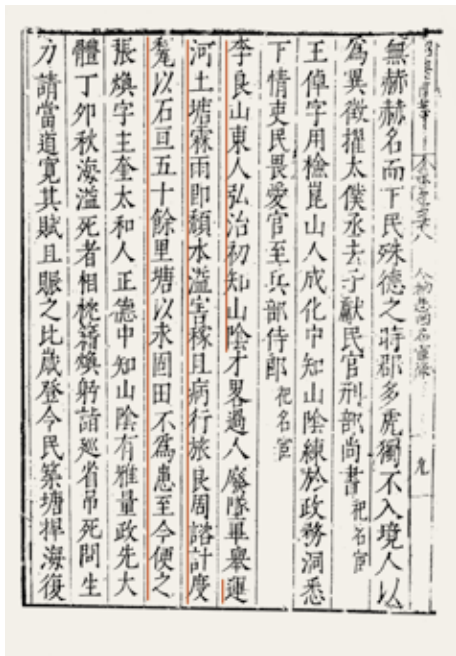 無赫赫名而下民殊德之時郡多虎獨不入境人以
為異徵擢太僕丞去子獻民官刑部尚書祀名宦
王倬字用檢崑山人成化中知山陰練於政務洞悉
下情吏民畏愛官至兵部侍郎祀名宦
李良山東人弘治初知山陰才畧過人廢墜畢舉運
河土塘霖雨即頽水溢害稼且病行旅良周諮計度
甃以石亘五十餘里塘以永固田不為患至今便之
張煥字主奎太和人正德中知山陰有雅量政先大
體丁卯秋海溢死者相枕藉煥躬請巡省吊死問生
力請當道寬其賦且賑之比歲登令民築塘捍海復